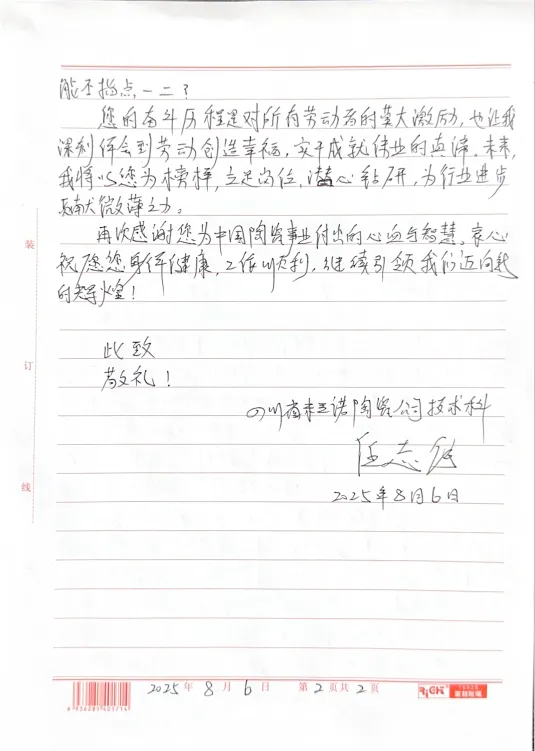 能否指点一二？
您的奋斗历程是对所有劳动者的莫大激励，也让我
深刻体会到劳动创造幸福，实干成就伟业的真谛。未来，
我将以您为榜样，立足岗位，潜心钻研，为行业进步
贡献微薄之力。
再次感谢您为中国陶瓷事业付出的心血与智慧。衷心
祝愿您身体健康，工作顺利，继续引领我们迈向新
的辉煌！
此致
敬礼！
四川省 陶瓷公司技术科
2025年8月6日
装
订
线
2025年8月6日 第2页共2页